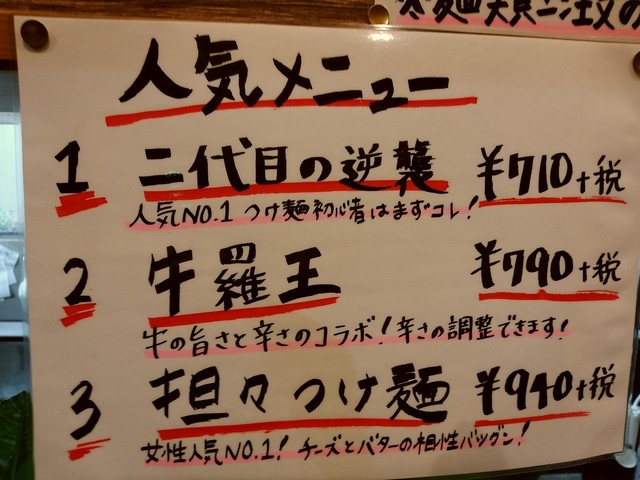 人気メニュー
1 二代目の逆襲 ¥710+税
人気NO.1 つけ麺初心者はまずコレ!
2 牛羅王 ¥790+税
牛の旨さと辛さのコラボ!辛さの調整できます!
3 担々つけ麺 ¥940+税
女性人気NO.1! チーズとバターの相性バツグン!